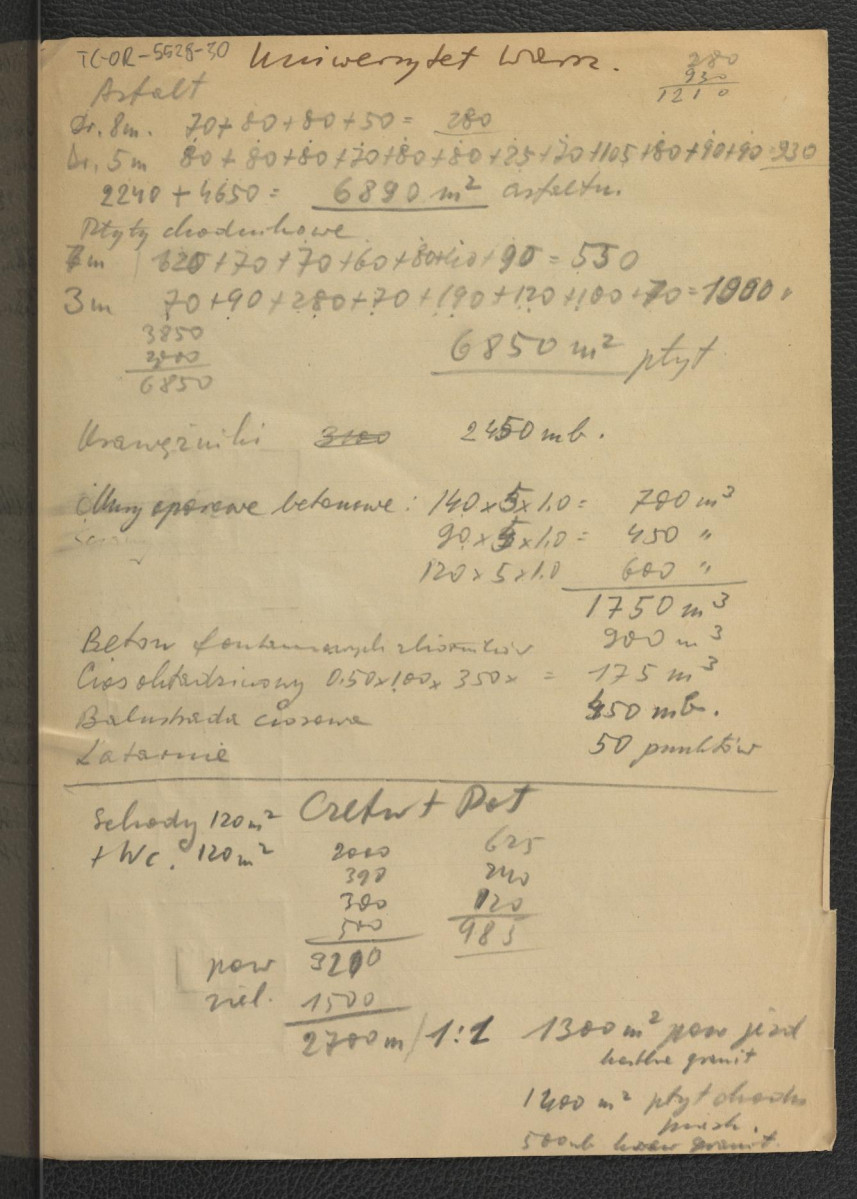 TC-OR-5528-30 Uniwersytet Warsz.
280
930
1210
Asfalt
Dr. 8m. 70+80+80+50= 280
Dr. 5m 80+80+80+70+80+80+25+70+105+80+90+90=930
2240+4650= 6890 m² asfaltu.
Płyty chodnikowe
7m 120+70+70+60+80+60+90=550
3m 70+90+280+70+190+120+100+70=1000
3850
3000
6850
6850 m² płyt
Krawężniki 3100 2450 mb.
Mury oporowe betonowe: 140x5x1.0= 700 m³
90x5x1.0= 450 "
120x5x1.0 600 "
1750 m³
Beton zbiorników 900 m³
Cios okładzinowy 0.50x1.00x350x = 175 m³
Balustrada ciosowa 450 mb.
Latarnie 50 punktów
Schody 120 m²
+ Wc. 120 m²
2000
390
300
500
pow 3200
ziel. 1500
2700 m / 1:1
625
240
120
985
1300 m² pow jezd
kostka granit
1400 m² płyt chodn
500 mb kraw granit.